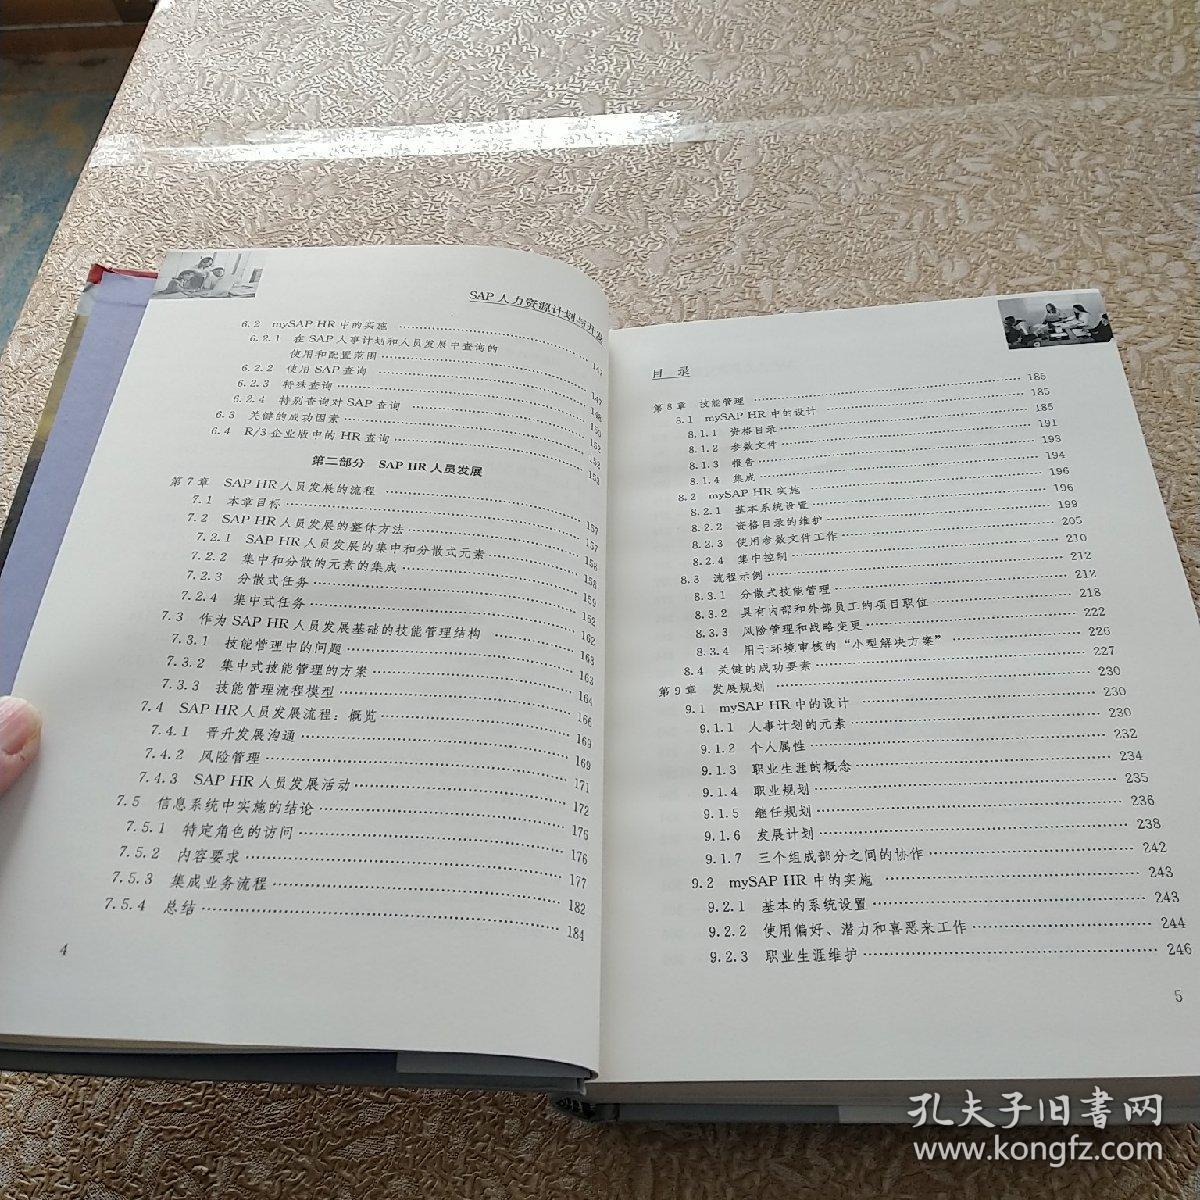 SAP 人力资源计划与开发
6.2 mySAP HR 中的实施
6.2.1 在 SAP 人事计划和人员发展中查询的
使用和配置范围
6.2.2 使用 SAP 查询 147
6.2.3 特殊查询
6.2.4 特别查询对 SAP 查询 150
6.3 关键的成功因素 152
6.4 R/3 企业版中的 HR 查询 153
第二部分 SAP HR 人员发展
第7章 SAP HR 人员发展的流程 157
7.1 本章目标 157
7.2 SAP HR 人员发展的整体方法 158
7.2.1 SAP HR 人员发展的集中和分散式元素 158
7.2.2 集中和分散的元素的集成 159
7.2.3 分散式任务
7.2.4 集中式任务 162
7.3 作为 SAP HR 人员发展基础的技能管理结构 163
7.3.1 技能管理中的问题 163
7.3.2 集中式技能管理的方案 164
7.3.3 技能管理流程模型 166
7.4 SAP HR 人员发展流程：概览 169
7.4.1 晋升发展沟通 169
7.4.2 风险管理 171
7.4.3 SAP HR 人员发展活动 172
7.5 信息系统中实施的结论 175
7.5.1 特定角色的访问 176
7.5.2 内容要求 177
7.5.3 集成业务流程 182
7.5.4 总结 184
4
目 录
第8章 技能管理 185
8.1 mySAP HR 中的设计 185
8.1.1 资格目录 185
8.1.2 参数文件 191
8.1.3 报告 193
8.1.4 集成 194
8.2 mySAP HR 实施 196
8.2.1 基本系统设置 196
8.2.2 资格目录的维护 199
8.2.3 使用参数文件工作 205
8.2.4 集中控制 210
8.3 流程示例 212
8.3.1 分散式技能管理 212
8.3.2 具有内部和外部员工的项目职位 218
8.3.3 风险管理和战略变更 222
8.3.4 用于环境审核的“小型解决方案” 226
8.4 关键的成功要素 227
第9章 发展规划 230
9.1 mySAP HR 中的设计 230
9.1.1 人事计划的元素 230
9.1.2 个人属性 232
9.1.3 职业生涯的概念 234
9.1.4 职业规划 235
9.1.5 继任规划 236
9.1.6 发展计划 238
9.1.7 三个组成部分之间的协作 242
9.2 mySAP HR 中的实施 243
9.2.1 基本的系统设置 243
9.2.2 使用偏好、潜力和喜恶来工作 244
9.2.3 职业生涯维护 246
5
孔夫子旧书网
www.kongfz.com